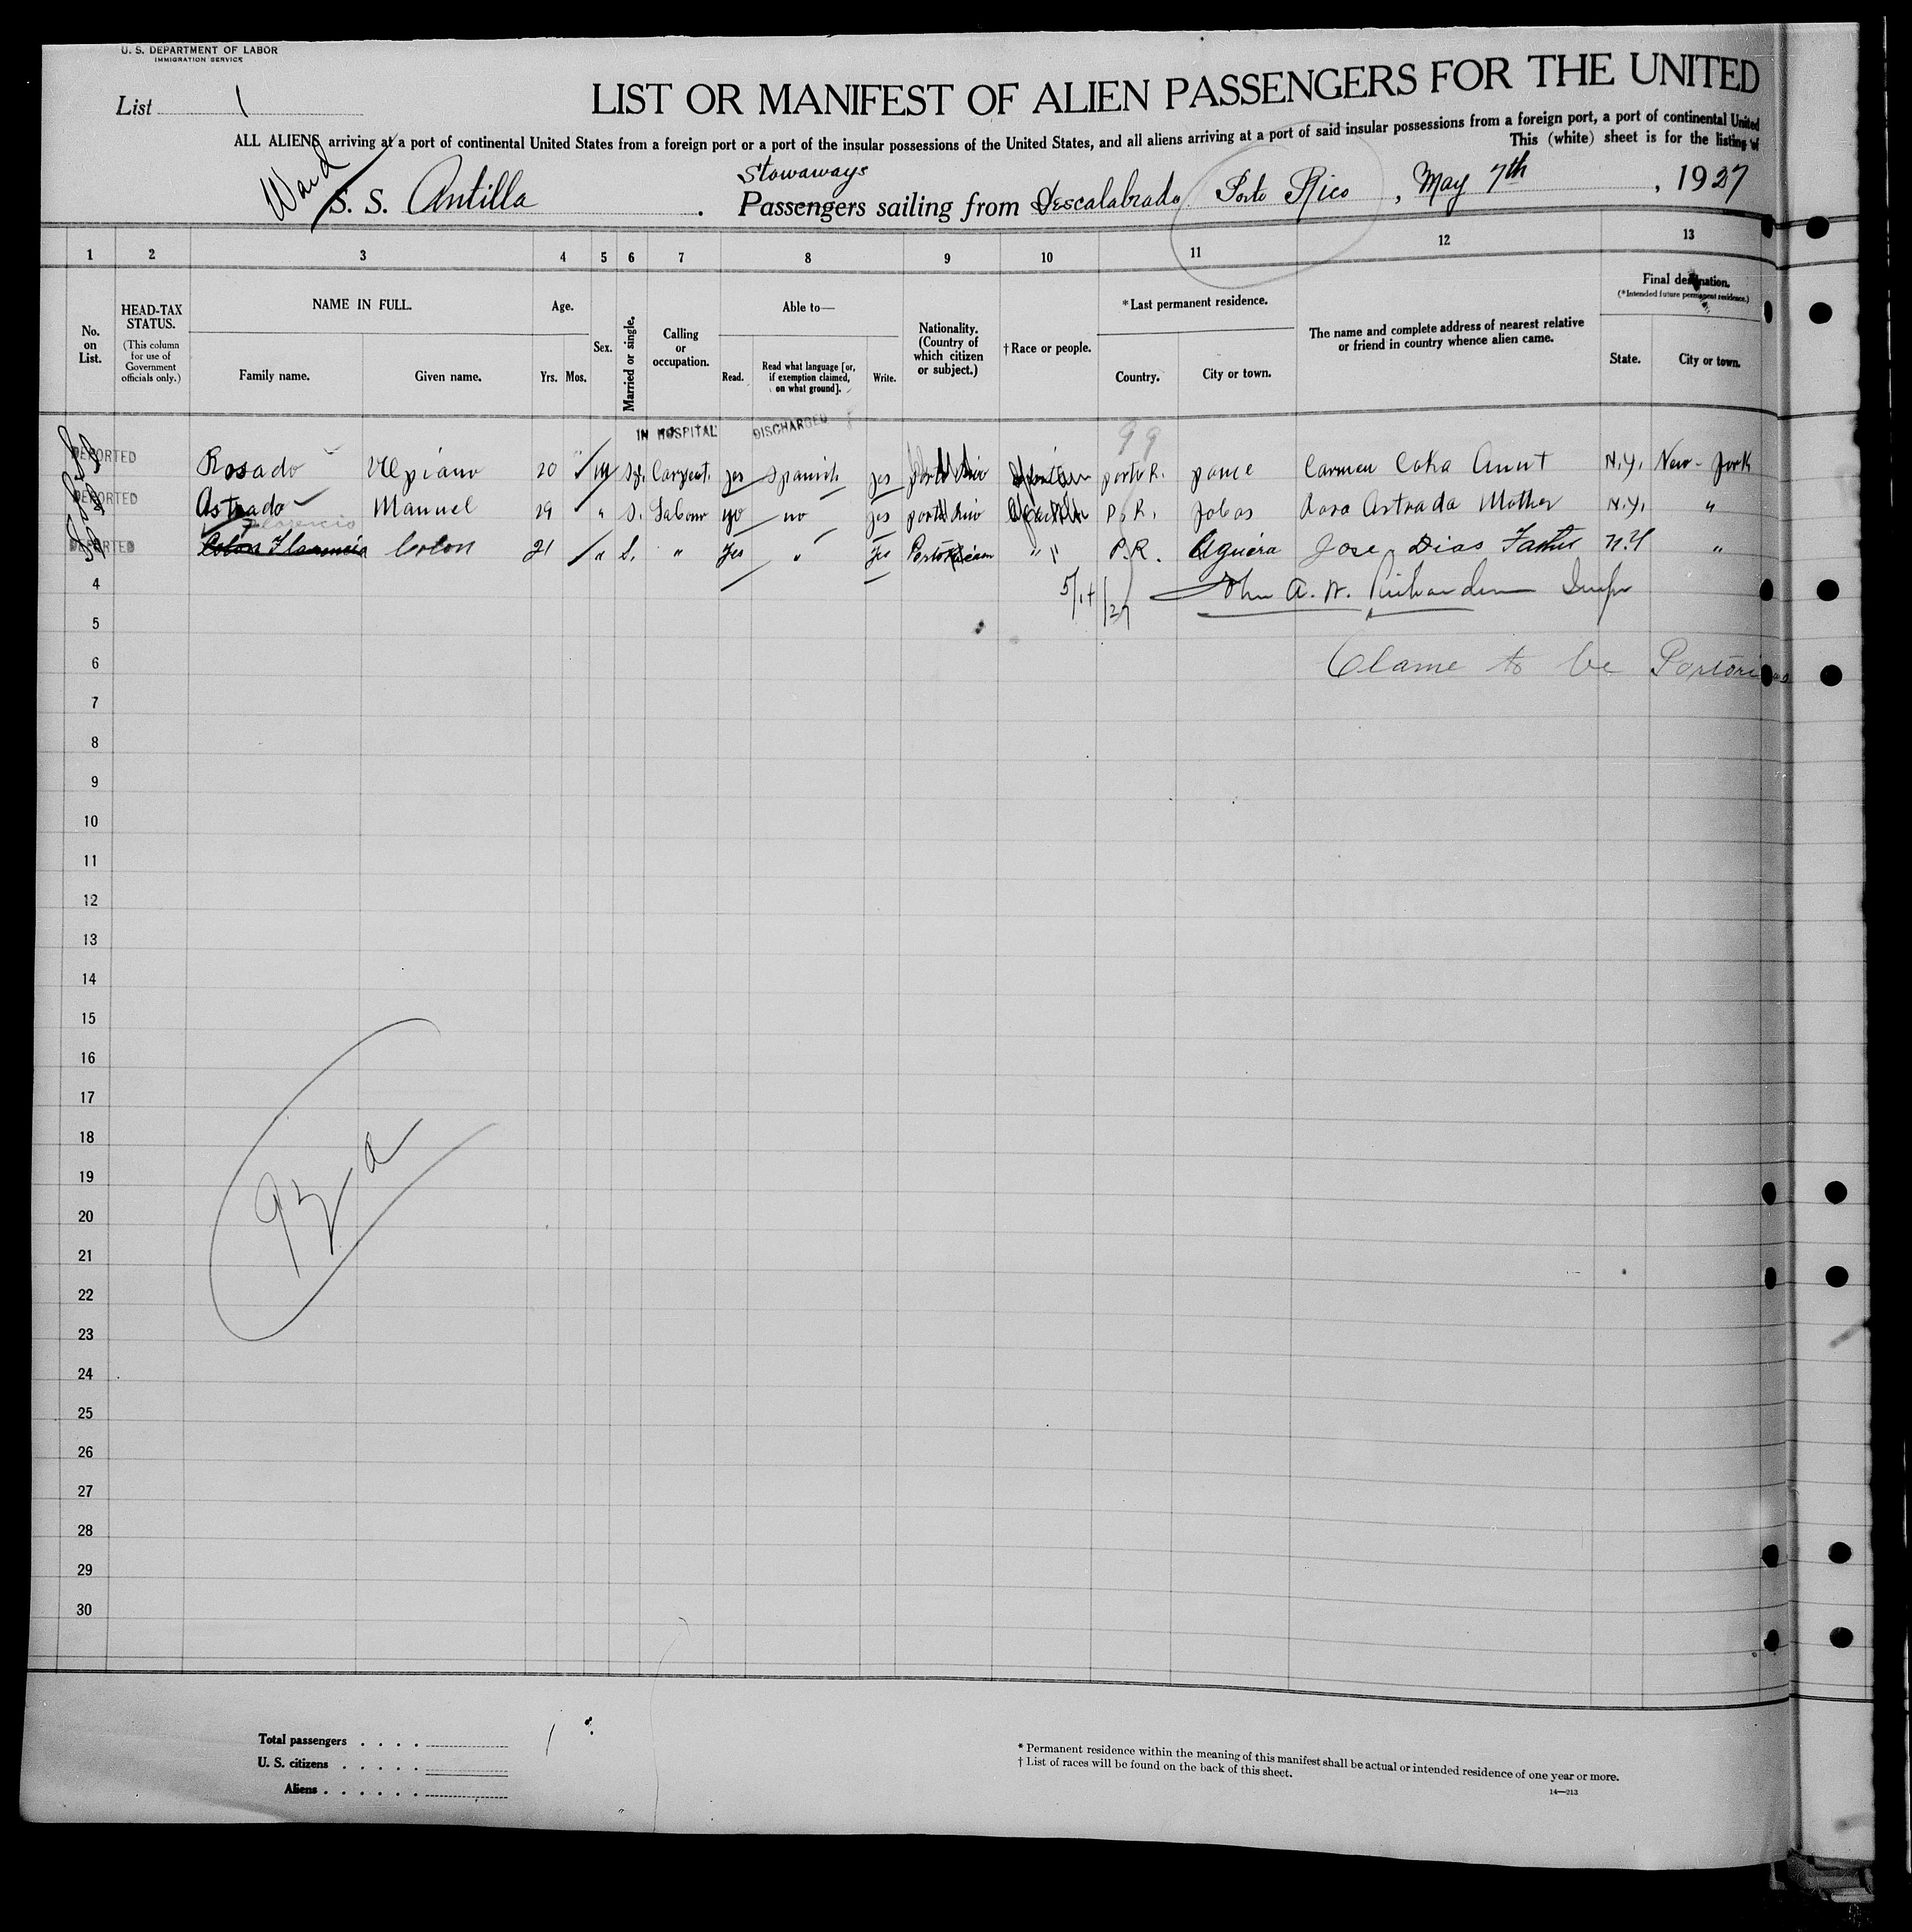 U. S. DEPARTMENT OF LABOR
IMMIGRATION SERVICE
List 1
LIST OR MANIFEST OF ALIEN PASSENGERS FOR THE UNITED
ALL ALIENS arriving at a port of continental United States from a foreign port or a port of the insular possessions of the United States, and all aliens arriving at a port of said insular possessions from a foreign port, a port of continental United
This (white) sheet is for the listing of
Ward
Stowaways
S. S. Antilla. Passengers sailing from Descalabrado Porto Rico, May 7th, 1927
1 2 3 4 5 6 7 8 9 10 11 12 13
No. on List.
HEAD-TAX STATUS.
(This column for use of Government officials only.)
NAME IN FULL.
Family name. Given name.
Age.
Yrs. Mos.
Sex.
Married or single.
Calling or occupation.
Able to—
Read.
Read what language [or, if exemption claimed, on what ground].
Write.
Nationality. (Country of which citizen or subject.)
†Race or people.
*Last permanent residence.
Country. City or town.
The name and complete address of nearest relative or friend in country whence alien came.
Final destination.
(*Intended future permanent residence.)
State. City or town.
IN HOSPITAL DISCHARGED
99
DEPORTED Rosado Ulpiano 20 M S. Carpent. yes Spanish yes porto Rico porto R. ponce Carmen Coka Aunt N.Y. New-York
DEPORTED Astrado Manuel 29 " S. Labour no yes porto Rico P.R. Jobos Rosa Astrada Mother N.Y. "
Florencio
DEPORTED Colon Florencia Colon 21 " S. " Yes " Yes Portorican " " P.R. Aguira Jose Dias Father N.Y "
4 5/14/27 John A. W. Richardson Insp
5
6 Clame to be
7
8
9
10
11
12
13
14
15
16
17
18
19
20
21
22
23
24
25
26
27
28
29
30
Total passengers . . . .
U. S. citizens . . . . .
Aliens . . . . . .
* Permanent residence within the meaning of this manifest shall be actual or intended residence of one year or more.
† List of races will be found on the back of this sheet.
14—213